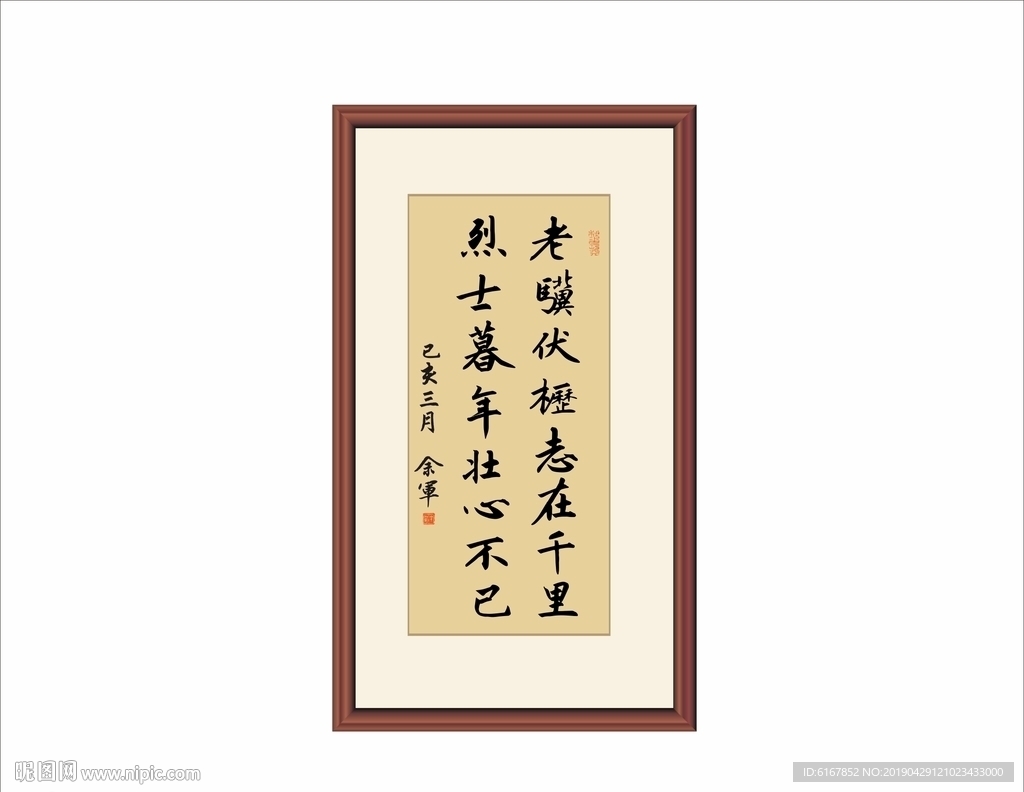 老驥伏櫪志在千里
烈士暮年壮心不已
己亥三月 余軍
昵图网 www.nipic.com
ID:6167852 NO:20190429121023433000